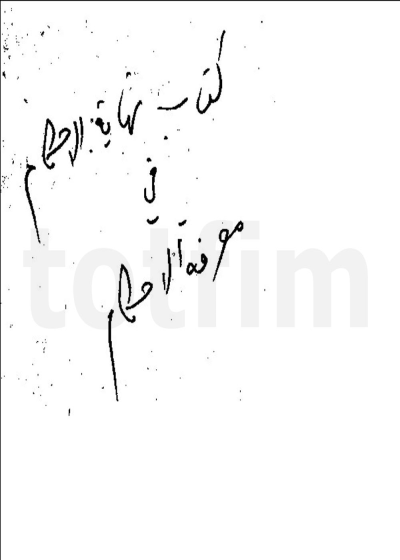 كتاب نهاية الاحكام
في
معرفة الاحكام
totfim